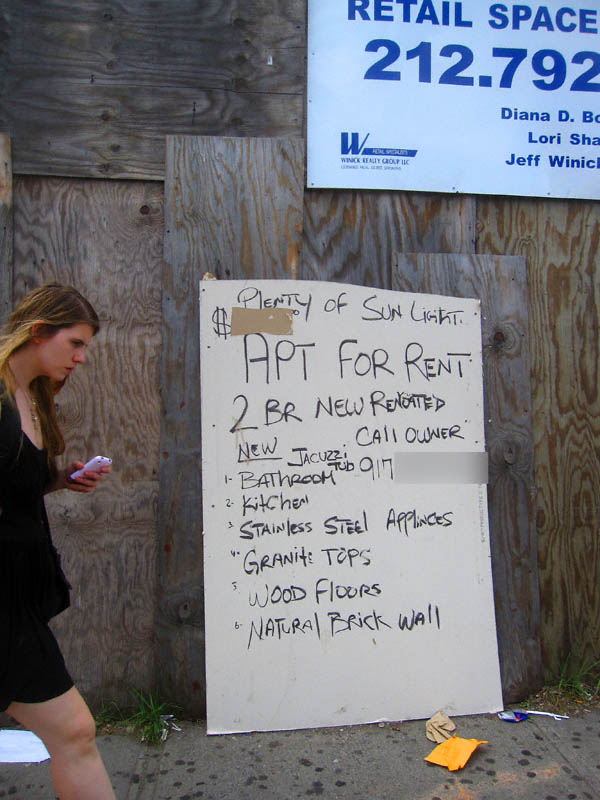 RETAIL SPACE
212.792
Diana D. Bo
Lori Sha
Jeff Winick
RETAIL SPECIALISTS
WINICK REALTY GROUP LLC
LICENSED REAL ESTATE BROKERS
PLENTY OF SUN LIGHT.
$
APT FOR RENT
2 BR NEW RENOATED
NEW CAll OWNER
JACUZZi TUB 917
1- BATHROOM
2- KitCHEN
3- STAINlESS STEEl APPlINCES
4- GRANItE TOPS
5- WOOD FlOORS
6- NATURAl BRiCK WAll